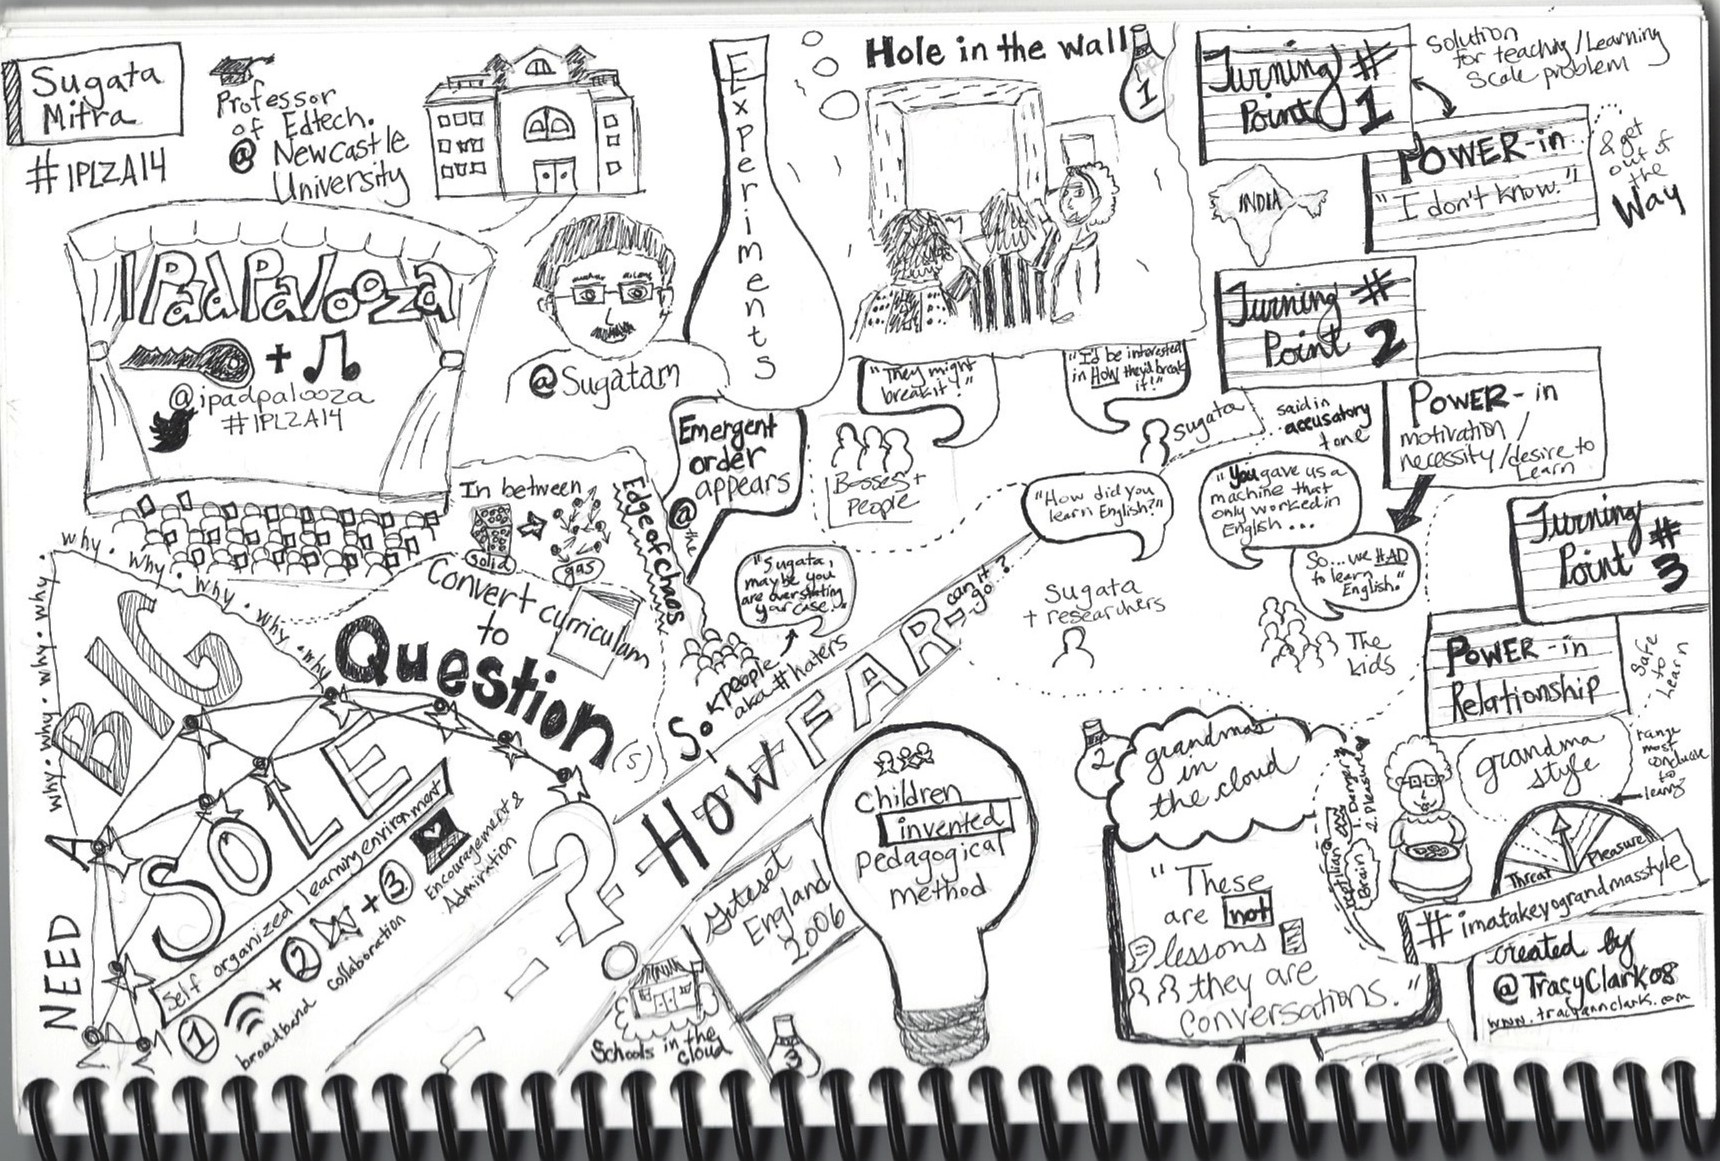 Sugata
Mitra
#IPLZA14
Professor
of Edtech.
@ Newcastle
University
IPadPalooza
+
@ipadpalooza
#IPLZA14
@Sugatam
Experiments
Hole in the Wall
1
"They might
break it!"
"I'd be interested
in How they'd break
it!"
Bosses +
People
Sugata
Turning #
Point 1
Solution
for teaching/Learning
Scale problem
POWER-in
"I don't know."
& get
out of
the
Way
INDIA
Turning #
Point 2
POWER-in
motivation/
necessity/desire to
Learn
said in
accusatory
tone
"How did you
learn English?"
"You gave us a
machine that
only worked in
English...
So...we HAD
to learn
English."
Sugata
+ researchers
The
kids
Turning
Point #
3
POWER-in
Relationship
Safe
to
Learn
Emergent
order
appears
@ the
Edge of Chaos
In between
solid
gas
Convert curriculum
to
Question
"Sugata,
maybe you
are overstating
your case."
people
aka #haters
why · why · why · why · why · why
why · why · why · why · why
NEED A
BIG
SOLE
?
Self organized learning environment
1
broadband
+
2
collaboration
+
3
Encouragement &
Admiration
So HOW FAR can it go?
Gateset
England
2006
Schools in the
cloud
3
Children
invented
pedagogical
method
2
grandmas
in
the cloud
"These
are not
lessons
they are
conversations."
reptilian
brain
1. Danger
2. Pleasure
grandma
style
range
most
conducive
to
learng
Threat
Pleasure
#imatakeyograndmasstyle
created by
@TracyClark08
www.tracyannclark.com